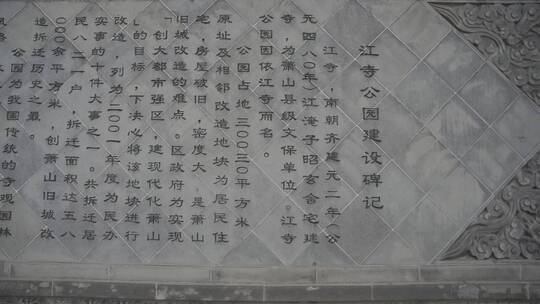 江寺公园建设碑记
江寺，南朝齐建元二年（公
元四八〇年）江淹子昭玄舍宅建
寺，为萧山县级文保单位。江寺
公园因依江寺而名。
公园占地三〇〇三〇平方米
原址及相邻改造地块为居民住
宅，房屋破旧，密度大，是萧山
旧城改造的难点。区政府为实现
“创大都市强区，建现代化萧山
”的目标，下决心将该地块进行
改造，列为二〇〇一年度为民办
实事的十件大事之一。共拆迁居
民八二一户，拆迁面积达五八
〇〇〇余平方米，创萧山旧城改
造拆迁历史之最。
公园为我国传统的寺观园林